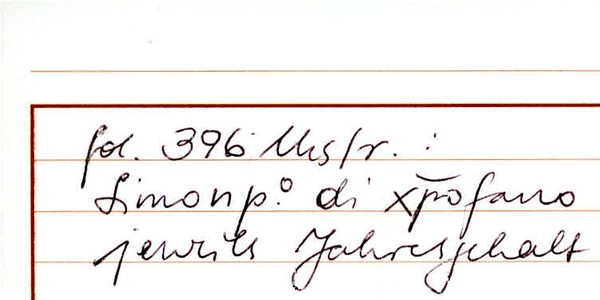 fol. 396 lks/r. :
Simonp.º di xp̄ofano
jeweils Jahresgehalt